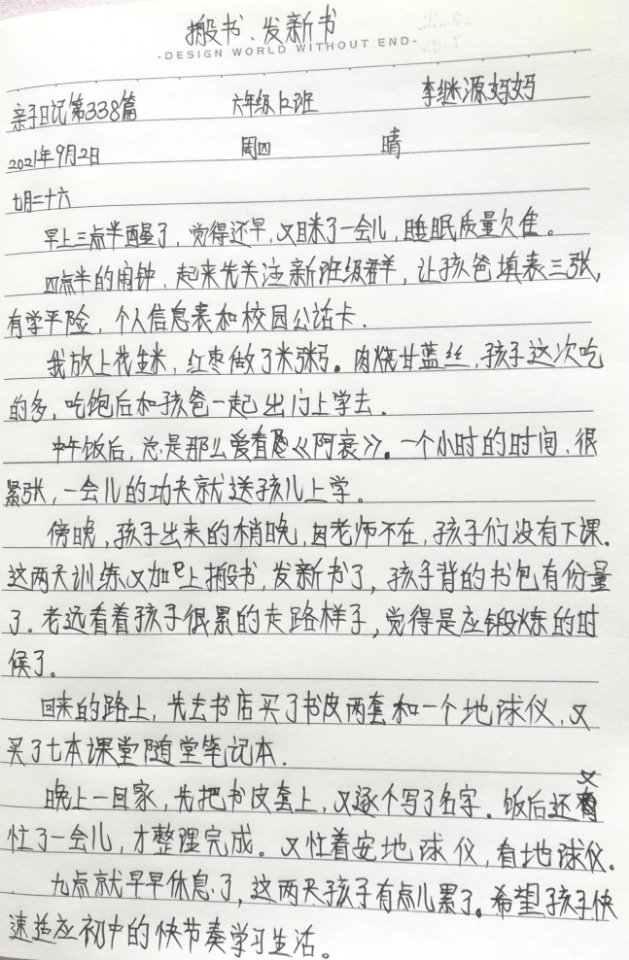 搬书、发新书
-DESIGN WORLD WITHOUT END-
亲子日记第338篇 六年级12班 李继源妈妈
2021年9月2日 周四 晴
七月二十六
早上三点半醒了，觉得还早，又眯了一会儿，睡眠质量欠佳。
四点半的闹钟，起来先关注新班级群，让孩爸填表三张，
有学平险，个人信息表和校园公话卡.
我放上花生米，红枣做了米粥。肉烧甘蓝丝，孩子这次吃
的多，吃饱后和孩爸一起出门上学去.
中午饭后，总是那么爱看《阿衰》。一个小时的时间，很
紧张，一会儿的功夫就送孩儿上学。
傍晚，孩子出来的稍晚，因老师不在，孩子们没有下课.
这两天训练又加上搬书，发新书了，孩子背的书包有份量
了.老远看着孩子很累的走路样子，觉得是应锻炼的时
候了.
回来的路上，先去书店买了书皮两套和一个地球仪，又
买了七本课堂随堂笔记本.
晚上一回家，先把书皮套上，又逐个写了名字.饭后还又
忙了一会儿，才整理完成。又忙着安地球仪，看地球仪.
九点就早早休息了，这两天孩子有点儿累了。希望孩子快
速适应初中的快节奏学习生活。